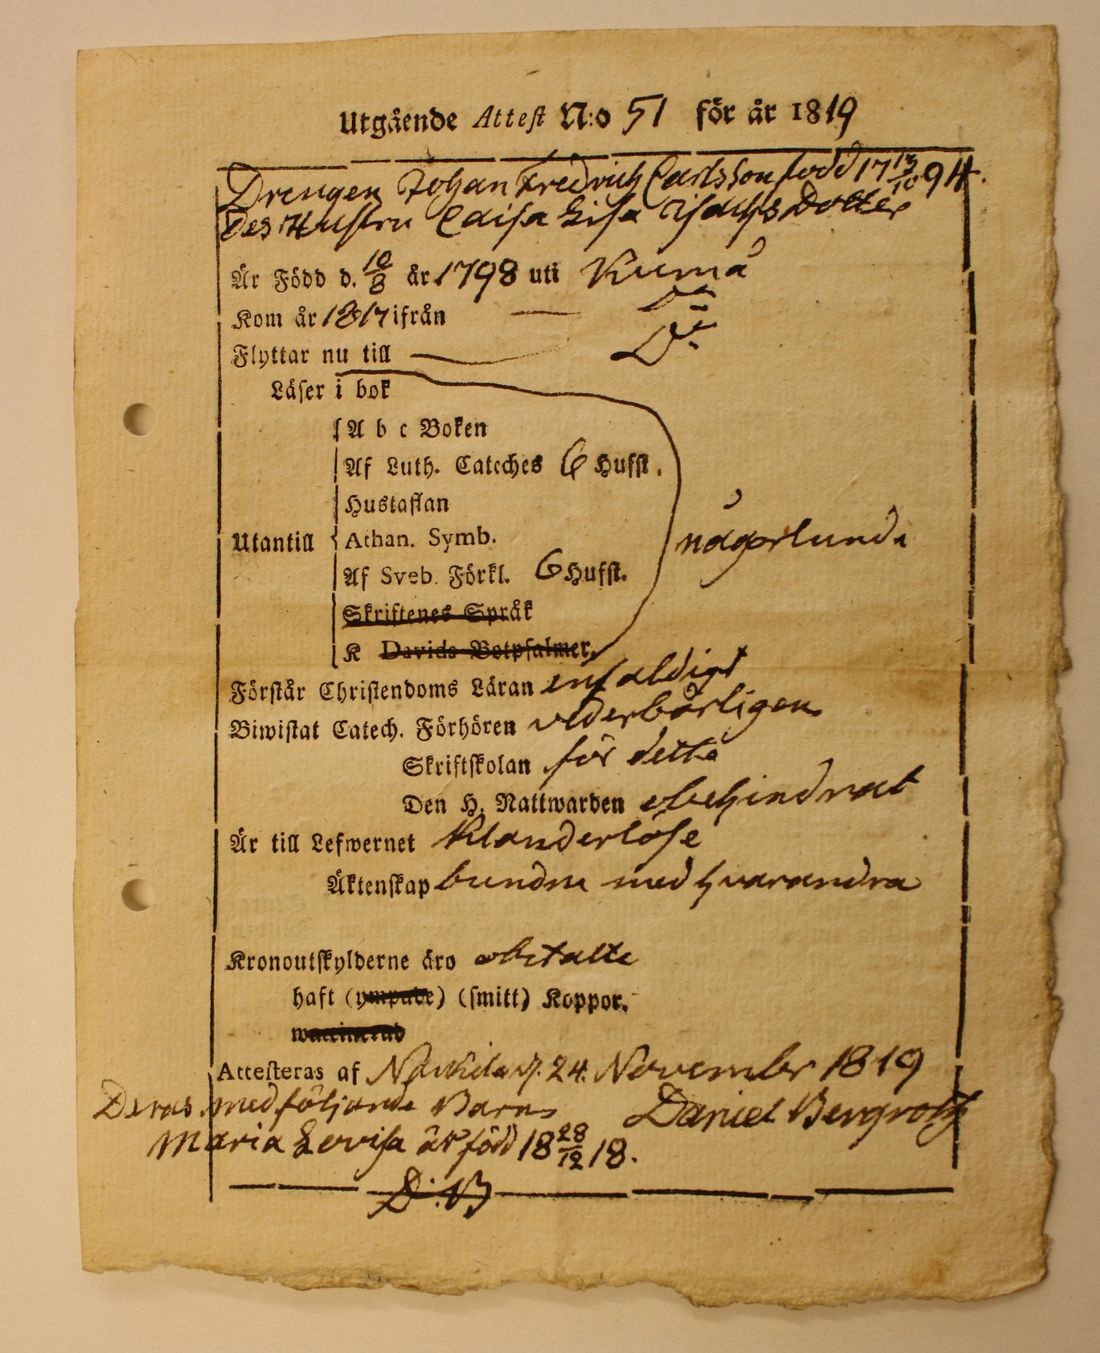 Utgående Attest N:o 51 för år 1819
Drengen Johan Fredrich Carlsson född 17 13/10 94.
Des Hustru Caisa Lisa Isachs Dotter
Är Född d. 10/8 år 1798 uti Kumå
Kom år 1817 ifrån — Do
Flyttar nu till — Do
Läser i bok
A b c Boken
Af Luth. Cateches 6 Hufst.
Hustaflan
Utantill Athan. Symb. någorlunda
Af Sveb. Förkl. 6 Hufst.
Skriftenes Språk
K Davids Botpsalmer.
Förstår Christendoms Läran enfaldigt
Biwistat Catech. Förhören vederbörligen
Skriftskolan för detta
Den H. Nattwarden obehindrat
Är till Lefwernet Klanderlöse
Äktenskap bundne med hvarandra
Kronoutskylderne äro obetalte
haft (ympade) (smitt) Koppor.
waccinerad
Attesteras af d. 24. November 1819
Deras medföljande Barn Daniel Bergroth
Maria Lovisa är född 18 28/12 18.
D. B